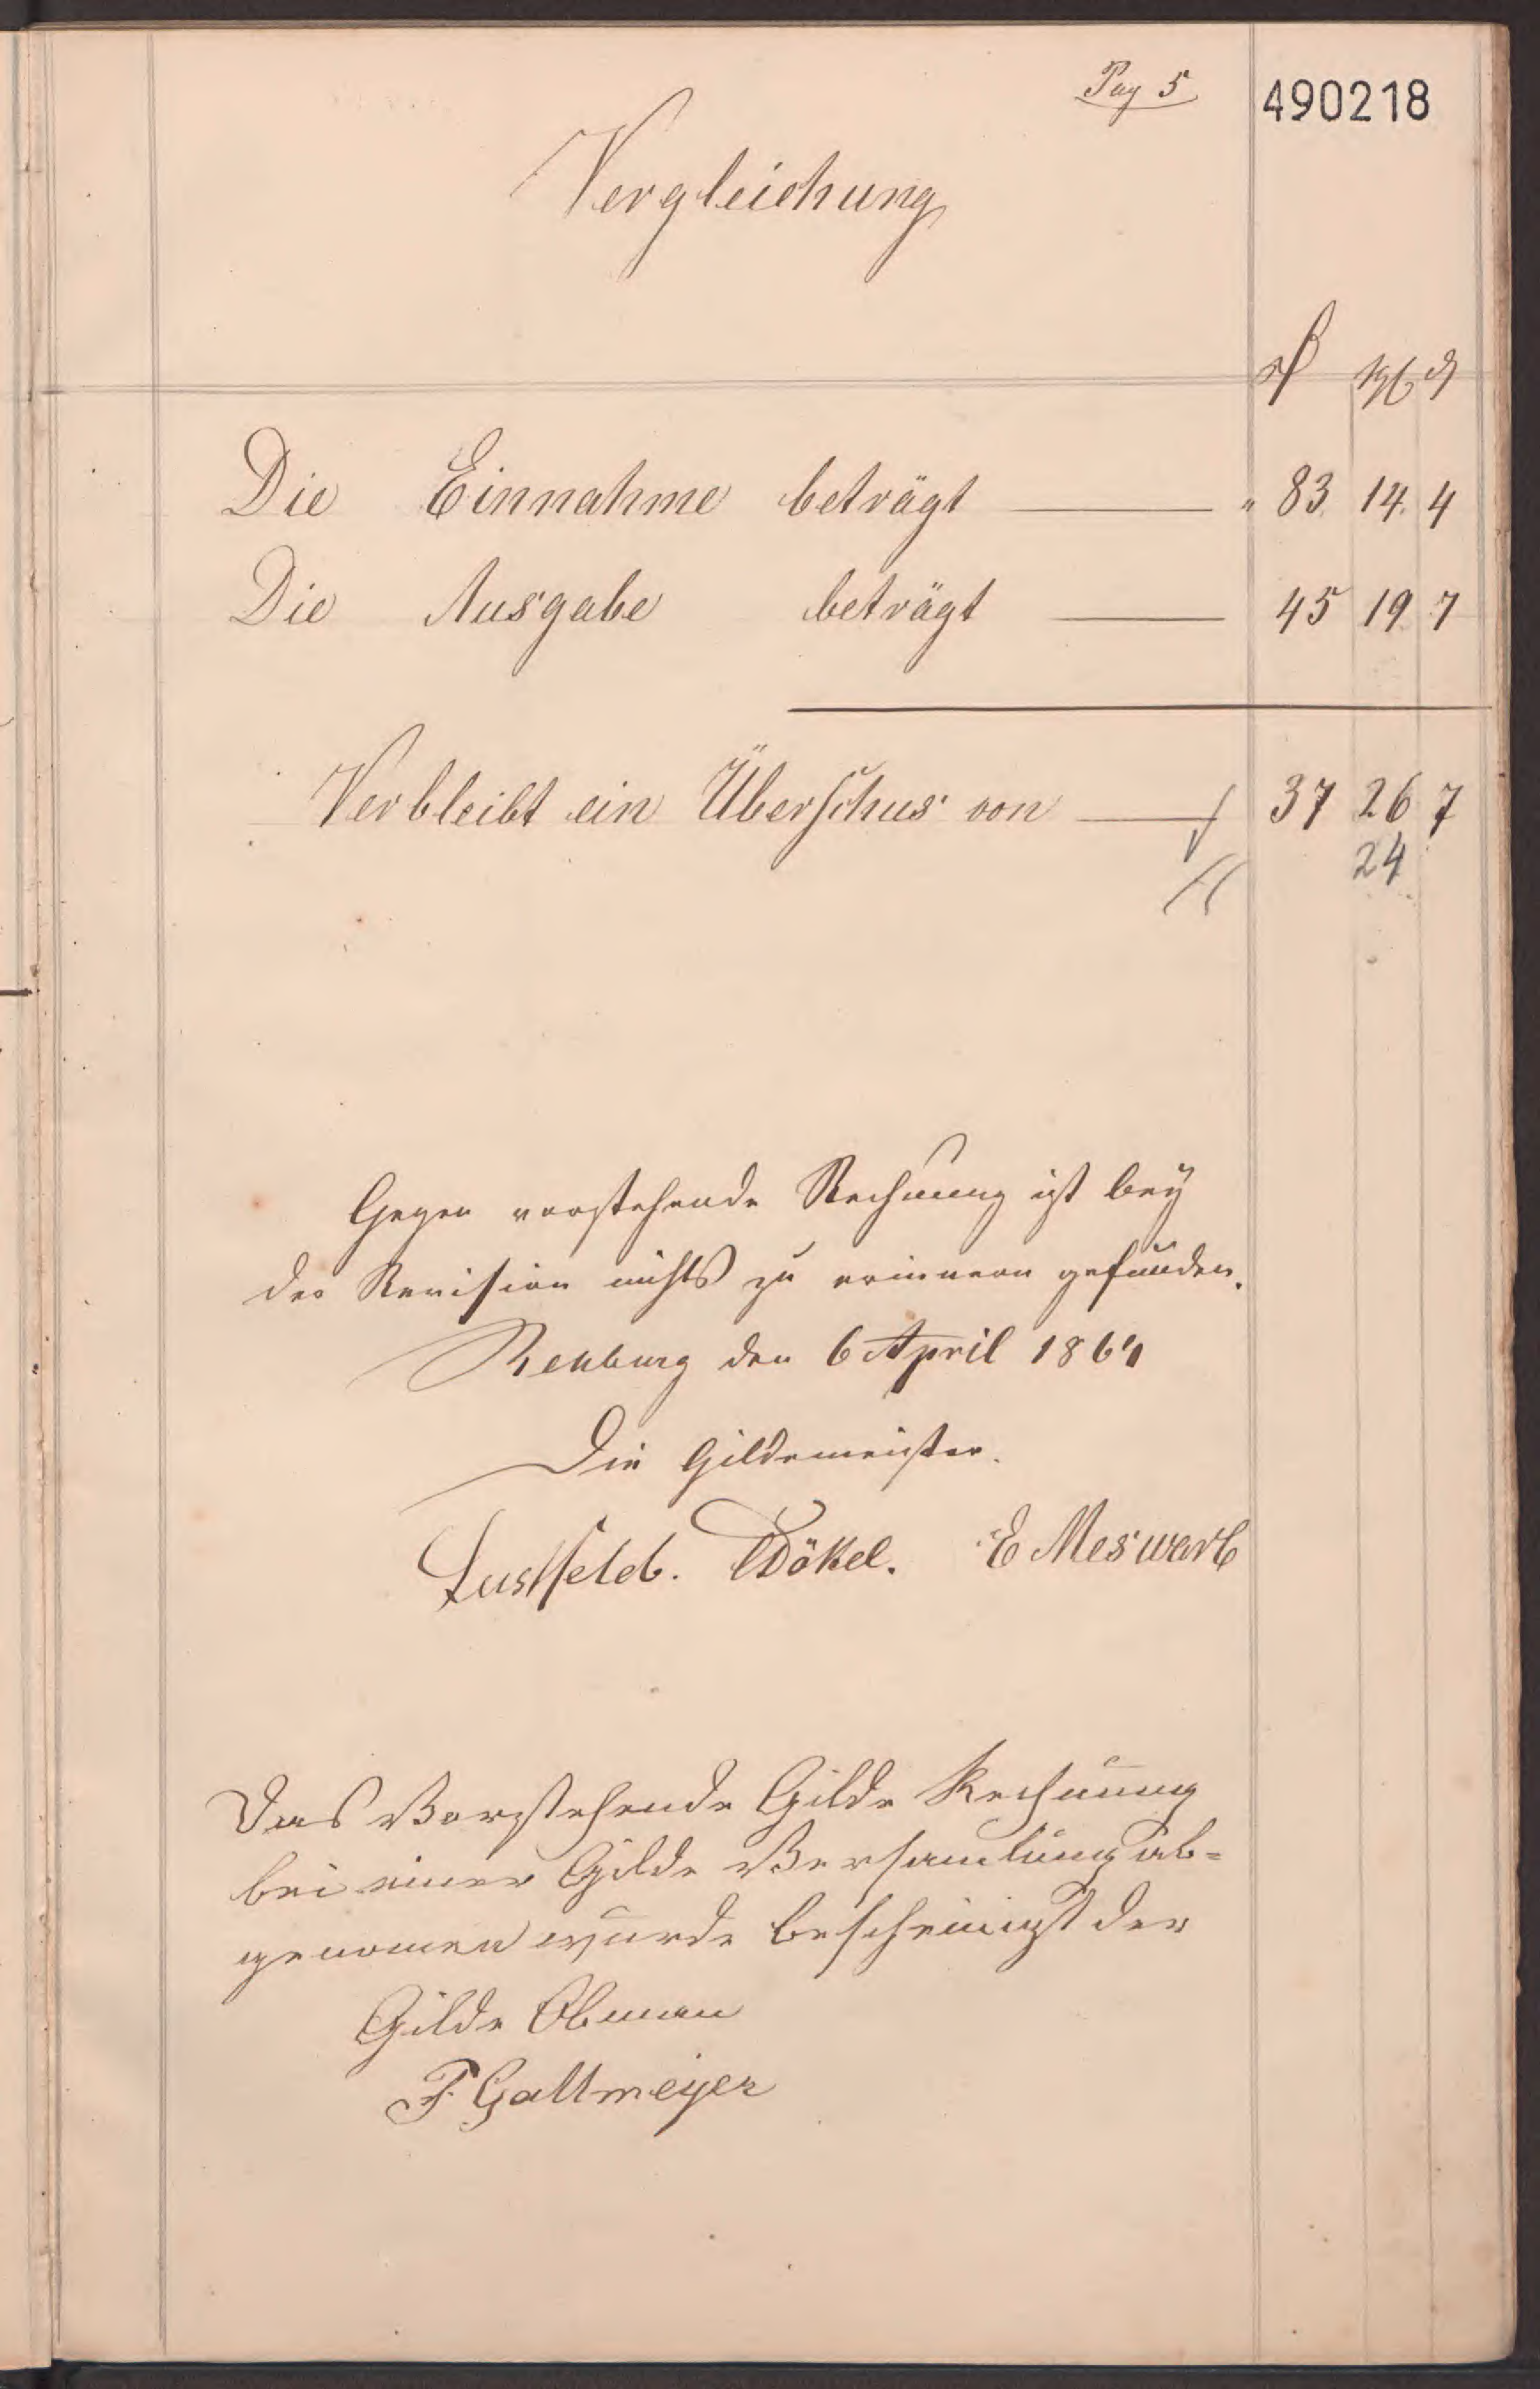 Pag 5
490218
Vergleichung
₰
Die Einnahme beträgt " 83. 14. 4
Die Ausgabe beträgt 45 19. 7
Verbleibt ein Überschus von 37 26 7
24
Gegen vorstehende Rechnung ist bey
der Revision nichts zu erinnern gefunden.
Rehburg den 6 April 1864
Die Gildemeister.
Lustfeld. Dökel. E Meswarb
Das Vorstehende Gilde Rechnung
bei einer Gilde Versamlung ab-
genomen wurde bescheinigt der
Gilde Obman
F. Gallmeyer